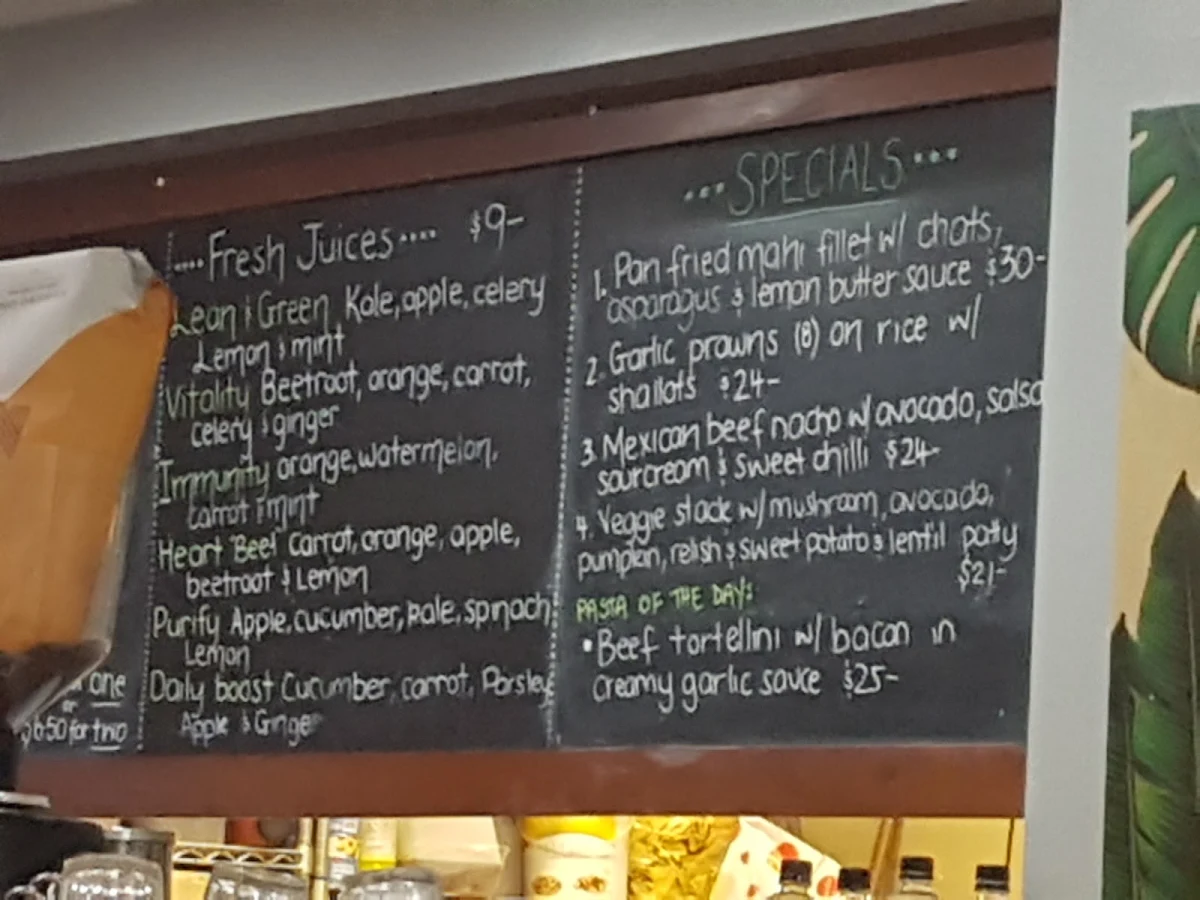 ....Fresh Juices.... $9-
Lean & Green Kale, apple, celery
Lemon & mint
Vitality Beetroot, orange, carrot,
celery & ginger
Immunity orange, watermelon,
carrot & mint
Heart "Beet" Carrot, orange, apple,
beetroot & Lemon
Purify Apple, cucumber, kale, spinach,
Lemon
Daily boost Cucumber, carrot, Parsley
Apple & Ginger
one
or
50 for two
...SPECIALS...
1. Pan fried mahi fillet w/ chats,
asparagus & lemon butter sauce $30-
2. Garlic prawns (8) on rice w/
shallots $24-
3. Mexican beef nacho w/ avocado, salsa
sourcream & sweet chilli $24-
4. Veggie stack w/ mushroom, avocado,
pumpkin, relish & sweet potato & lentil patty
$21-
PASTA OF THE DAY:
• Beef tortellini w/ bacon in
creamy garlic sauce $25-